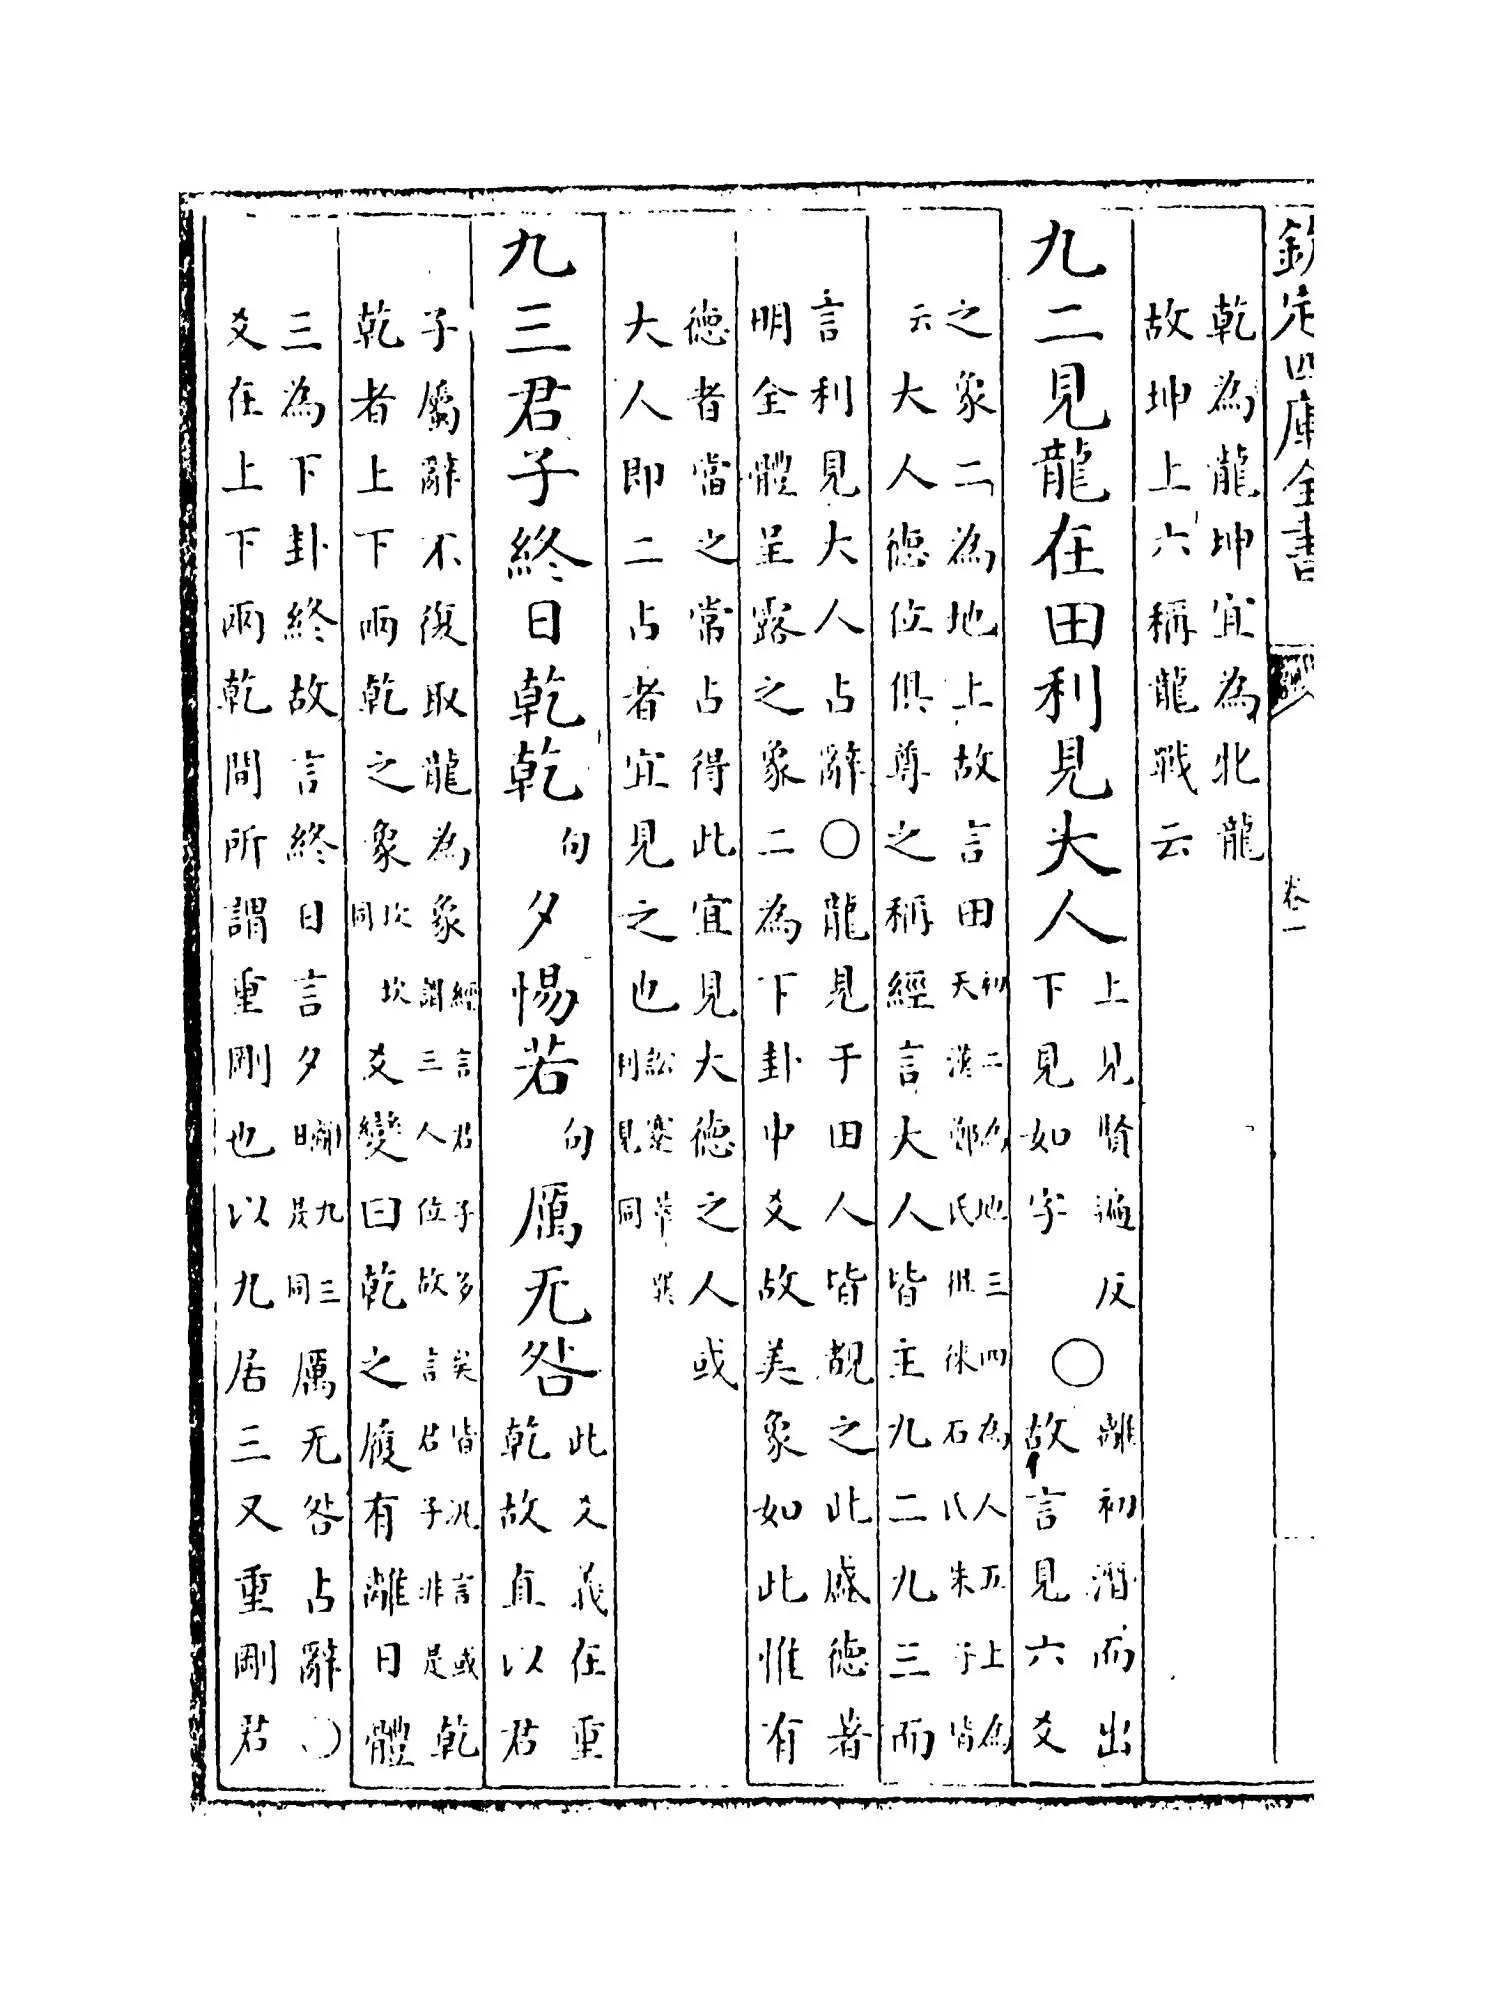 欽定四庫全書
卷一
乾為龍坤宜為北龍
故坤上六稱龍戰云
九二見龍在田利見大人
上見賢遍反
下見如字
○
離初潛而出
故言見六爻
之象二為地上故言田
初二為地三四為人五上為
天漢鄭氏俱徠石氏朱子皆
云大人德位俱尊之稱經言大人皆主九二九三而
言利見大人占辭○龍見于田人皆覩之此盛德著
明全體呈露之象二為下卦中爻故美象如此惟有
德者當之常占得此宜見大德之人或
大人即二占者宜見之也
訟蹇萃巽
利見同
九三君子終日乾乾句夕惕若句厲无咎
此爻義在重
乾故直以君
子屬辭不復取龍為象
經言君子多矣皆汎言或
謂三人位故言君子非是
乾
乾者上下兩乾之象
坎坎
同
爻變曰乾之履有離日體
三為下卦終故言終日言夕
九三
晨同
厲无咎占辭○
爻在上下兩乾間所謂重剛也以九居三又重剛君